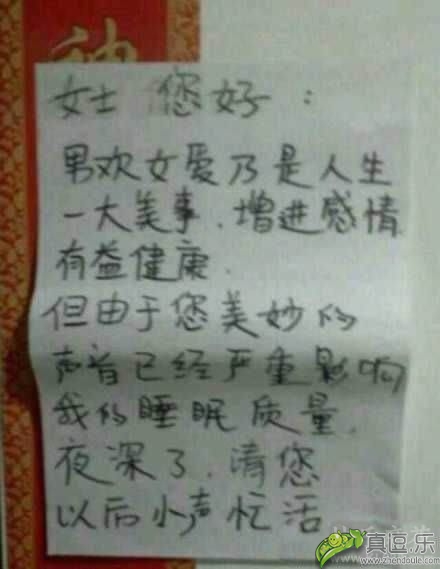 神
女士 您好：
男欢女爱乃是人生
一大美事、增进感情
有益健康.
但由于您美妙的
声音已经严重影响
我的睡眠质量.
夜深了.请您
以后小声忙活
真逗乐
www.zhendoule.com